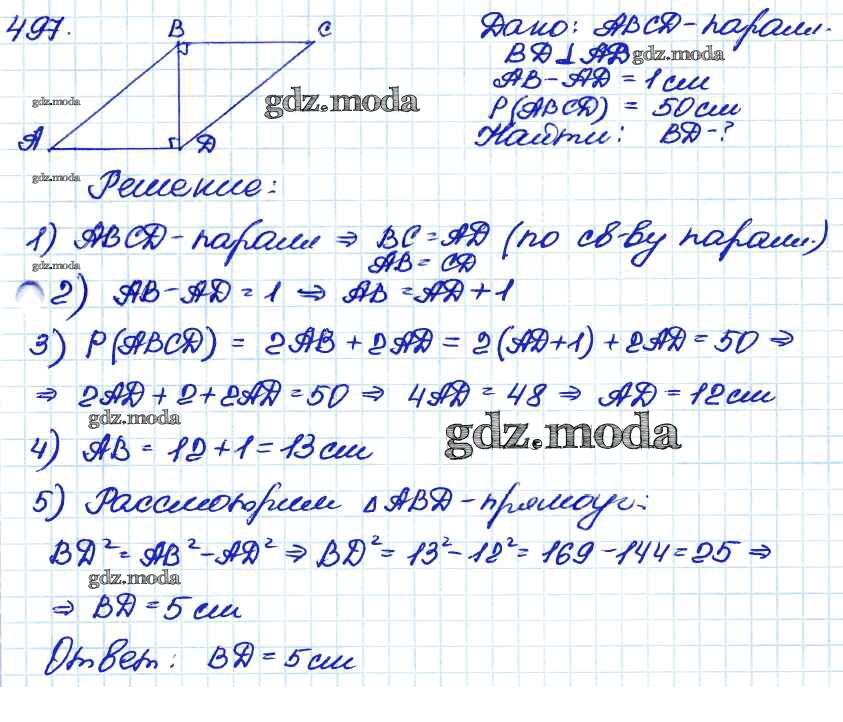 497.
B C
A D
Дано: ABCD-паралл.
BD⊥AD
AB-AD = 1 см
P(ABCD) = 50 см
Найти: BD-?
gdz.moda
gdz.moda
gdz.moda
gdz.moda
Решение:
1) ABCD-паралл ⇒ BC = AD (по св-ву паралл.)
AB = CD
gdz.moda
2) AB-AD = 1 ⇒ AB = AD+1
3) P(ABCD) = 2AB + 2AD = 2(AD+1) + 2AD = 50 ⇒
⇒ 2AD + 2 + 2AD = 50 ⇒ 4AD = 48 ⇒ AD = 12 см
gdz.moda
gdz.moda
4) AB = 12+1 = 13 см
5) Рассмотрим ΔABD-прямоуг.:
BD² = AB² - AD² ⇒ BD² = 13² - 12² = 169 - 144 = 25 ⇒
gdz.moda
⇒ BD = 5 см
Ответ: BD = 5 см